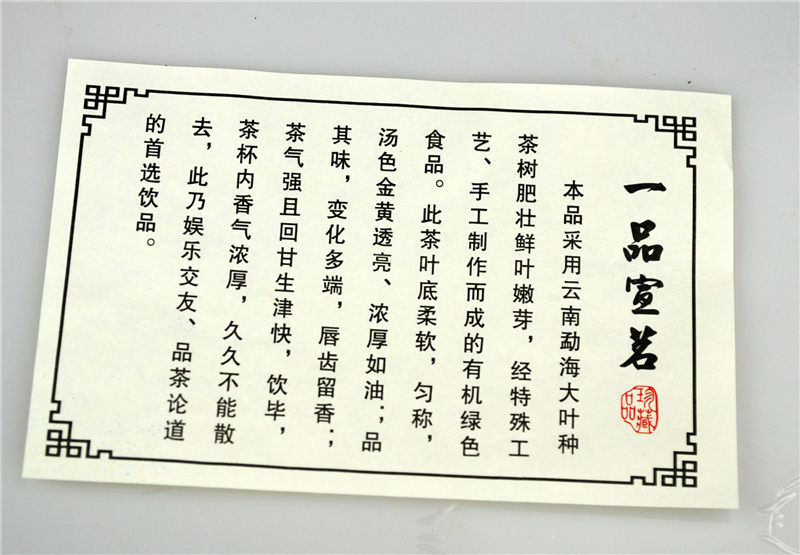 一品宣茗
珍藏品
本品采用云南勐海大叶种
茶树肥壮鲜叶嫩芽，经特殊工
艺、手工制作而成的有机绿色
食品。此茶叶底柔软，匀称，
汤色金黄透亮、浓厚如油；品
其味，变化多端，唇齿留香；
茶气强且回甘生津快，饮毕，
茶杯内香气浓厚，久久不能散
去，此乃娱乐交友、品茶论道
的首选饮品。